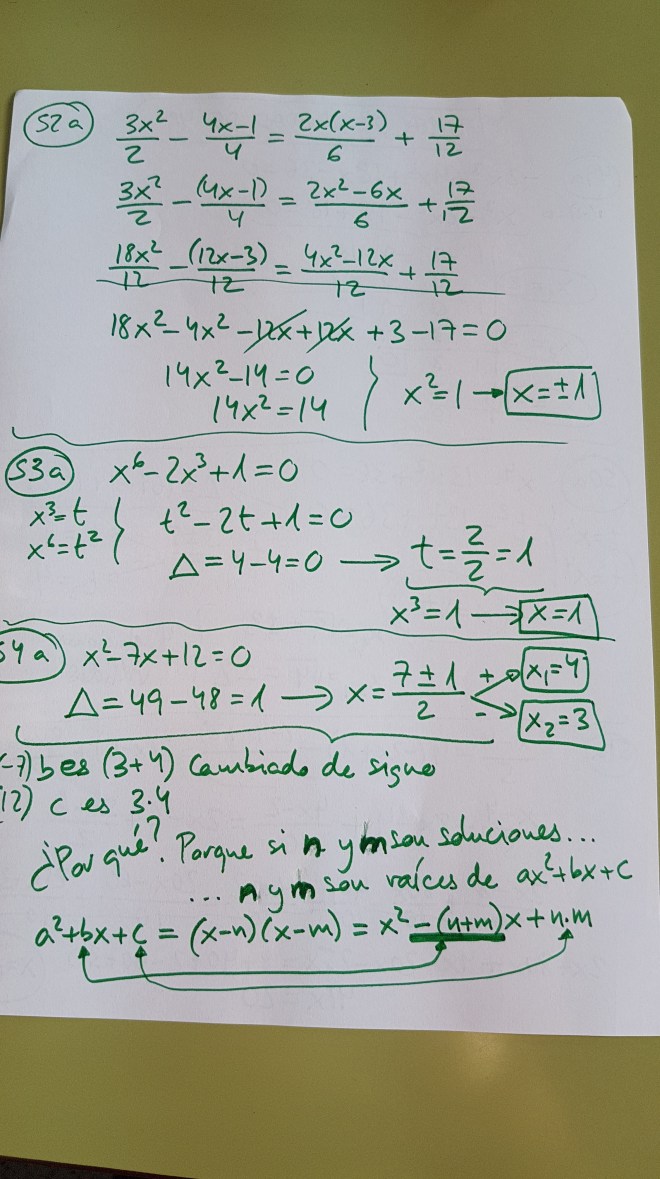 52a 3x²/2 - 4x-1/4 = 2x(x-3)/6 + 17/12
3x²/2 - (4x-1)/4 = 2x²-6x/6 + 17/12
18x²/12 - (12x-3)/12 = 4x²-12x/12 + 17/12
18x²-4x²-12x+12x+3-17=0
14x²-14=0
14x²=14 x²=1 → x=±1
53a x⁶-2x³+1=0
x³=t t²-2t+1=0
x⁶=t² Δ=4-4=0 → t=2/2=1
x³=1 → x=1
54a x²-7x+12=0
Δ=49-48=1 → x=7±1/2 + x₁=4
- x₂=3
(-7) b es (3+4) Cambiado de signo
(12) c es 3·4
¿Por qué?. Porque si n y m son soluciones...
... n y m son raíces de ax²+bx+c
a²+bx+c = (x-n)(x-m) = x²-(n+m)x+n.m